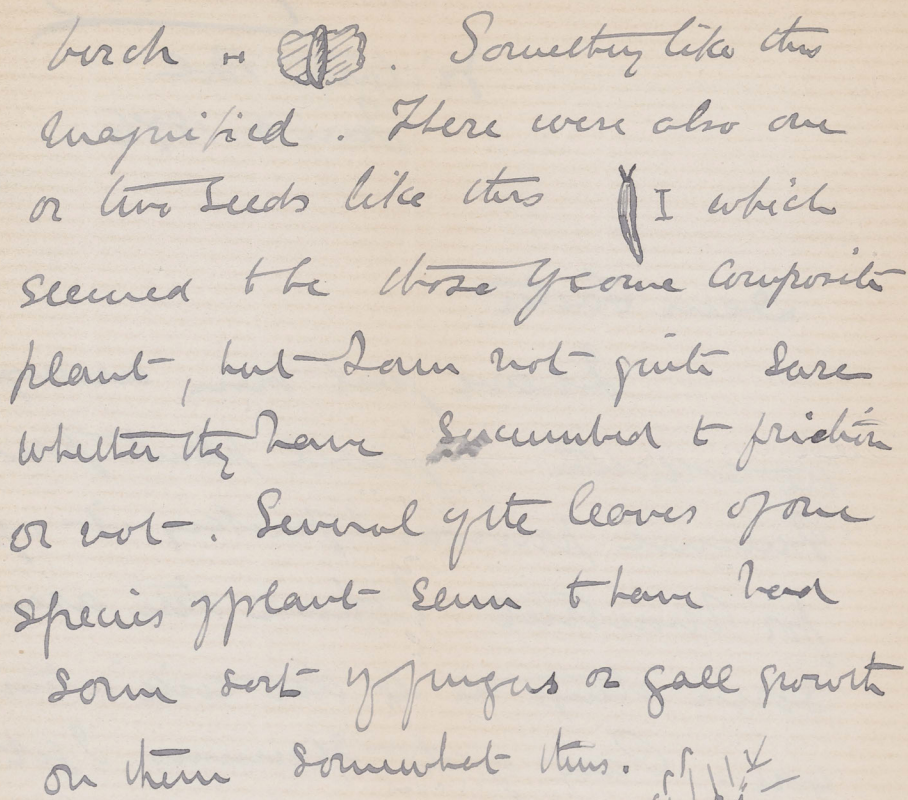 birch . Something like this
magnified . There were also one
or two seeds like this which
seemed to be those of some composite
plant, but I am not quite sure
whether they have succumbed to friction
or not . Several of the leaves of one
species of plant seem to have had
some sort of fungus or gall growth
on them somewhat thus.